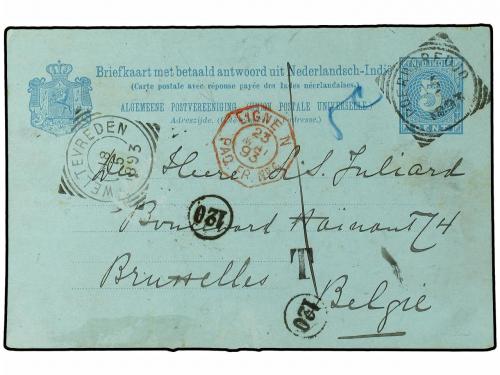 Briefkaart met betaald antwoord uit Nederlandsch-Indië
(Carte postale avec réponse payée des Indes néerlandaises.)
ALGEMEENE POSTVEREENIGING UNION POSTALE UNIVERSELLE
Adreszijde.
5
CENT
WELTEVREDEN
1893
LIGNE N
23
93
PAQ. FR. No
De Heer H. S. Juliard
Boulevard Hainaut 74
Bruxelles
België
120
T
120